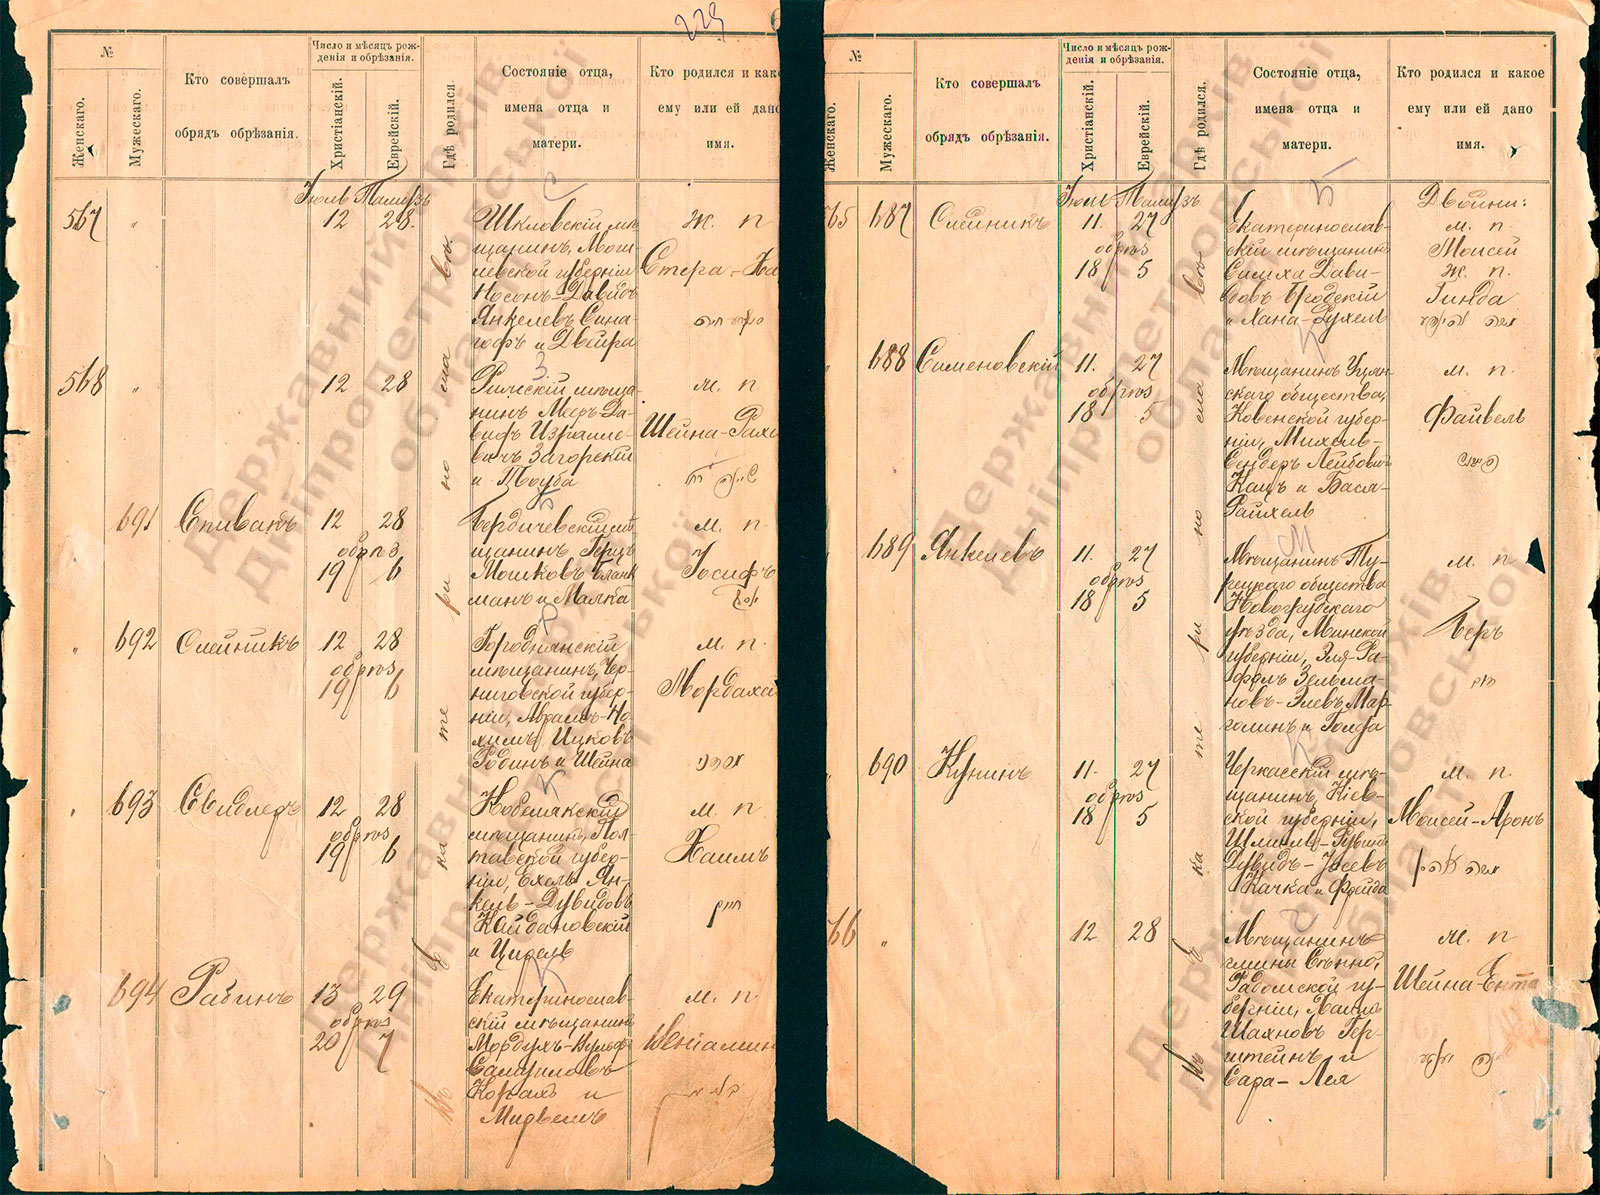 229
№
Женскаго.
Мужескаго.
Кто совершалъ
обрядъ обрѣзанія.
Число и мѣсяцъ рож-
денія и обрѣзанія.
Христіанскій.
Еврейскій.
Гдѣ родился.
Состояніе отца,
имена отца и
матери.
Кто родился и како
ему или ей дано
имя.
Іюль Тамузъ
567 " 12 28.
Шкловскій мѣ
щанинъ, Моги
левской губерніи
Носонъ-Давидъ
Янкелевъ Сина
гофъ и Двейра
ж. п
Стера-Ха
568 " 12 28
мѣща
нинъ Мееръ-Да
видъ Израиле
вичъ Загорскій
и Тоуба
м. п
Шейна-Рахи
691 Спивакъ 12 28
обрѣз
19 6
Бердичевскій мѣ
щанинъ Герцъ
Мошковъ Бланк
манъ и Малка
м. п
Іосифъ
" 692 Олейникъ 12 28
обрѣз
19 6
Городнянскій
мѣщанинъ, Чер-
ниговской губер-
ніи, Абрамъ-Но
химъ Ицковъ
Родинъ и Шейна
м. п.
Мордаха
" 693 Свидлеръ 12 28
обрѣз
19 6
Кобелякскій
мѣщанинъ, Пол-
тавской губер-
ніи, Ехель Ян-
кель-Дувидовъ
Кайдановскій
и Цирель
м. п
Хаимъ
694 Рабинъ 13 29
обрѣз
20 7
Екатеринослав-
скій мѣщанинъ
Мордухъ-Вульф
Самуиловъ
и
м. п
Веніамин
Въ Екатеринославѣ
№
Женскаго.
Мужескаго.
Кто совершалъ
обрядъ обрѣзанія.
Число и мѣсяцъ рож-
денія и обрѣзанія.
Христіанскій.
Еврейскій.
Гдѣ родился.
Состояніе отца,
имена отца и
матери.
Кто родился и какое
ему или ей дано
имя.
Іюль Тамузъ
65 687 Олейникъ 11. 27
обрѣз
18 5
Екатеринослав-
скій мѣщанинъ
Симха Дави-
довъ Бродскій
и Хана-Рухель
Двойни:
м. п.
Моисей
ж. п.
Гинда
" 688 Сименовскій 11. 27
обрѣз
18 5
Мѣщанинъ Уцян
скаго общества,
Ковенской губер-
ніи, Михель-
Сендеръ Лейбовичъ
Кацъ и Бася-
Райхель
м. п.
Файвель
689 Янкелевъ 11. 27
обрѣз
18 5
Мѣщанинъ Ту-
рецкаго общества
Новогрудскаго
уѣзда, Минской
губерніи, Эля-Ра-
фолъ Зельма-
новъ-Элевъ Мар-
голинъ и Голда
м. п
Беръ
690 Кунинъ 11. 27
обрѣз
18 5
Черкасскій мѣ-
щанинъ, Кіев-
ской губерніи,
Шлиомъ-Рувинъ
Дувидъ-Іосевъ
Качка и Фрейда
м. п.
Моисей-Аронъ
66 " 12 28
Мѣщанинъ
гмины Сѣнно,
Радомской гу-
берніи, Хаимъ
Шахновъ Гер-
штейнъ и
Сара-Лея
м. п
Шейна-Ента
Въ Екатеринославѣ
Державний архів
Дніпропетровської
області